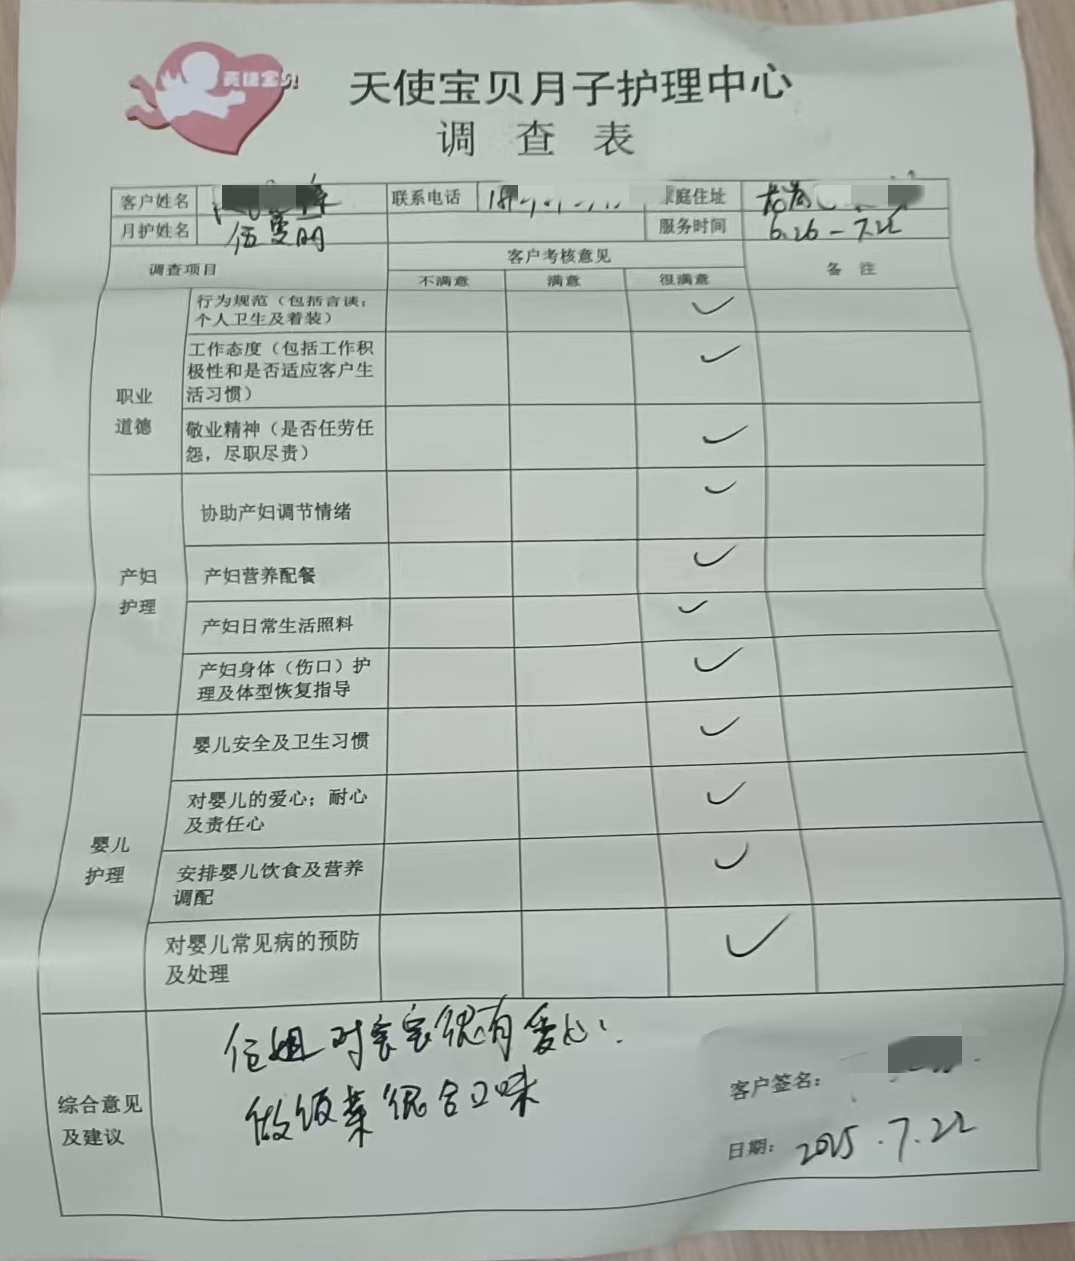 天使宝贝
天使宝贝月子护理中心
调查表
客户姓名 联系电话 家庭住址
月护姓名 伍曼丽 服务时间 6.26-7.22
调查项目 客户考核意见 备注
不满意 满意 很满意
职业
道德
行为规范（包括言谈；
个人卫生及着装）
工作态度（包括工作积
极性和是否适应客户生
活习惯）
敬业精神（是否任劳任
怨，尽职尽责）
产妇
护理
协助产妇调节情绪
产妇营养配餐
产妇日常生活照料
产妇身体（伤口）护
理及体型恢复指导
婴儿
护理
婴儿安全及卫生习惯
对婴儿的爱心；耐心
及责任心
安排婴儿饮食及营养
调配
对婴儿常见病的预防
及处理
综合意见
及建议
伍姐对宝宝很有爱心
做饭菜很合口味
客户签名：
日期：2025.7.22